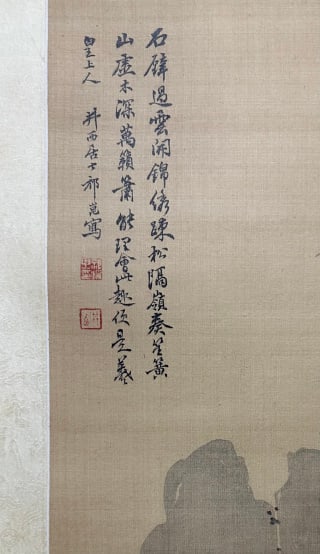 石壁過雲開錦繡疎松隔嶺奏笙簧
山虛木深萬籟簫能理會此趣便是羲
皇上人 井西居士祁崑寫